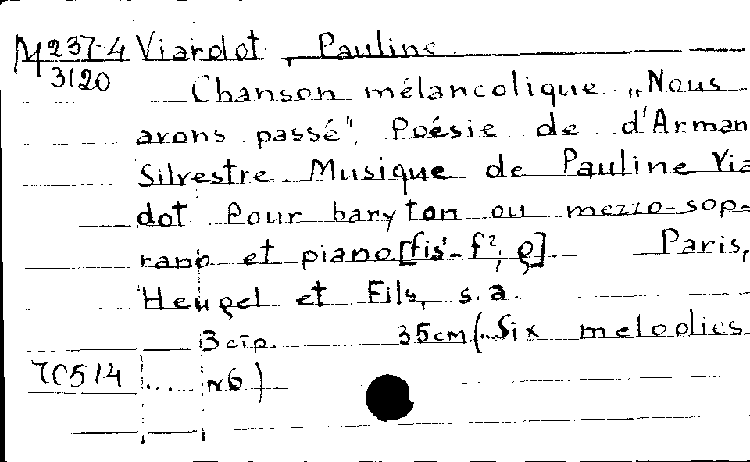 M 237-4 Viardot, Pauline
3120
Chanson mélancolique „Nous
avons passé". Poésie de d'Arman
Silvestre. Musique de Pauline Via
dot Pour baryton ou mezzo-sop-
rano et piano [fis'- f²; g]. Paris,
Heugel et Fils, s.a.
3 стр. 35cm (..Six melodies
TC514 .... n6)